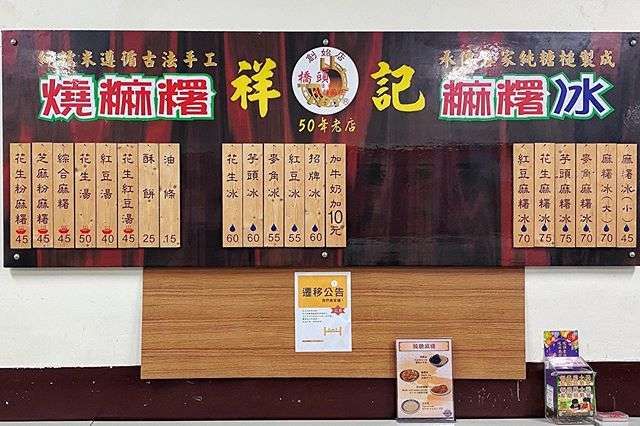 純糯米遵循古法手工
創始店
橋頭
承傳客家純糖槌製成
燒麻糬
祥記
麻糬冰
50年老店
花生粉麻糬 45
芝麻粉麻糬 45
綜合麻糬 45
花生湯 50
紅豆湯 40
花生紅豆湯 45
酥餅 25
油條 15
花生冰 60
芋頭冰 60
麥角冰 55
紅豆冰 55
招牌冰 60
加牛奶加10元
紅豆麻糬冰 70
花生麻糬冰 75
芋頭麻糬冰 75
麥角麻糬冰 70
麻糬冰(大) 70
麻糬冰(小) 45
遷移公告
燒麻糬